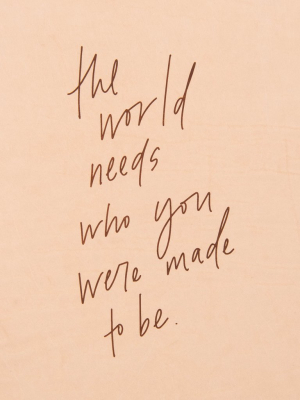 the
world
needs
who you
were made
to be.